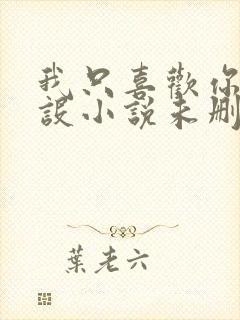 我只喜歡你
設小說未刪
葉老六